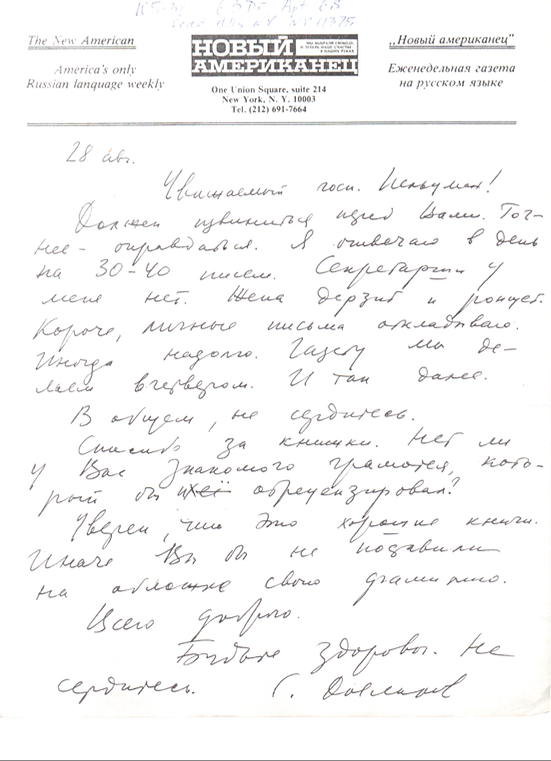 The New American
America's only
Russian language weekly
НОВЫЙ
АМЕРИКАНЕЦ
МЫ ВЫБРАЛИ СВОБОДУ,
И ТЕПЕРЬ НАШЕ СЧАСТЬЕ
В НАШИХ РУКАХ
One Union Square, suite 214
New York, N. Y. 10003
Tel. (212) 691-7664
„Новый американец"
Еженедельная газета
на русском языке
28 авг.
Уважаемый госп.
Должен извиниться перед Вами. Точ-
нее - оправдаться. Я отвечаю в день
на 30-40 писем. Секретарши у
меня нет. Жена дерзит и ропщет.
Короче, личные письма откладываю.
Иногда надолго. Газету мы де-
лаем вчетвером. И так далее.
В общем, не сердитесь.
Спасибо за книжки. Нет ли
у Вас знакомого грамотея, кото-
рый бы их отрецензировал?
Уверен, что это хорошие книги.
Иначе Вы бы не поставили
на обложке свою фамилию.
Всего доброго.
Будьте здоровы. Не
сердитесь. С. Довлатов